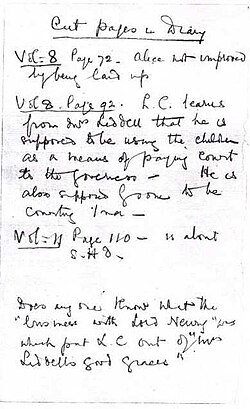 Cut Pages in Diary
Vol-8 Page 72. Alice not improved
by being laid up
Vol 8. Page 92. L.C. learns
from Mrs Liddell that he is
supposed to be using the children
as a means of paying court
to the governess — He is
also supposed by some to be
courting Ina —
Vol-11 Page 110 — is about
S.H.D.
Does any one know what the
"business with Lord Newry" was
which put L.C out of "Mrs
Liddell's good graces"